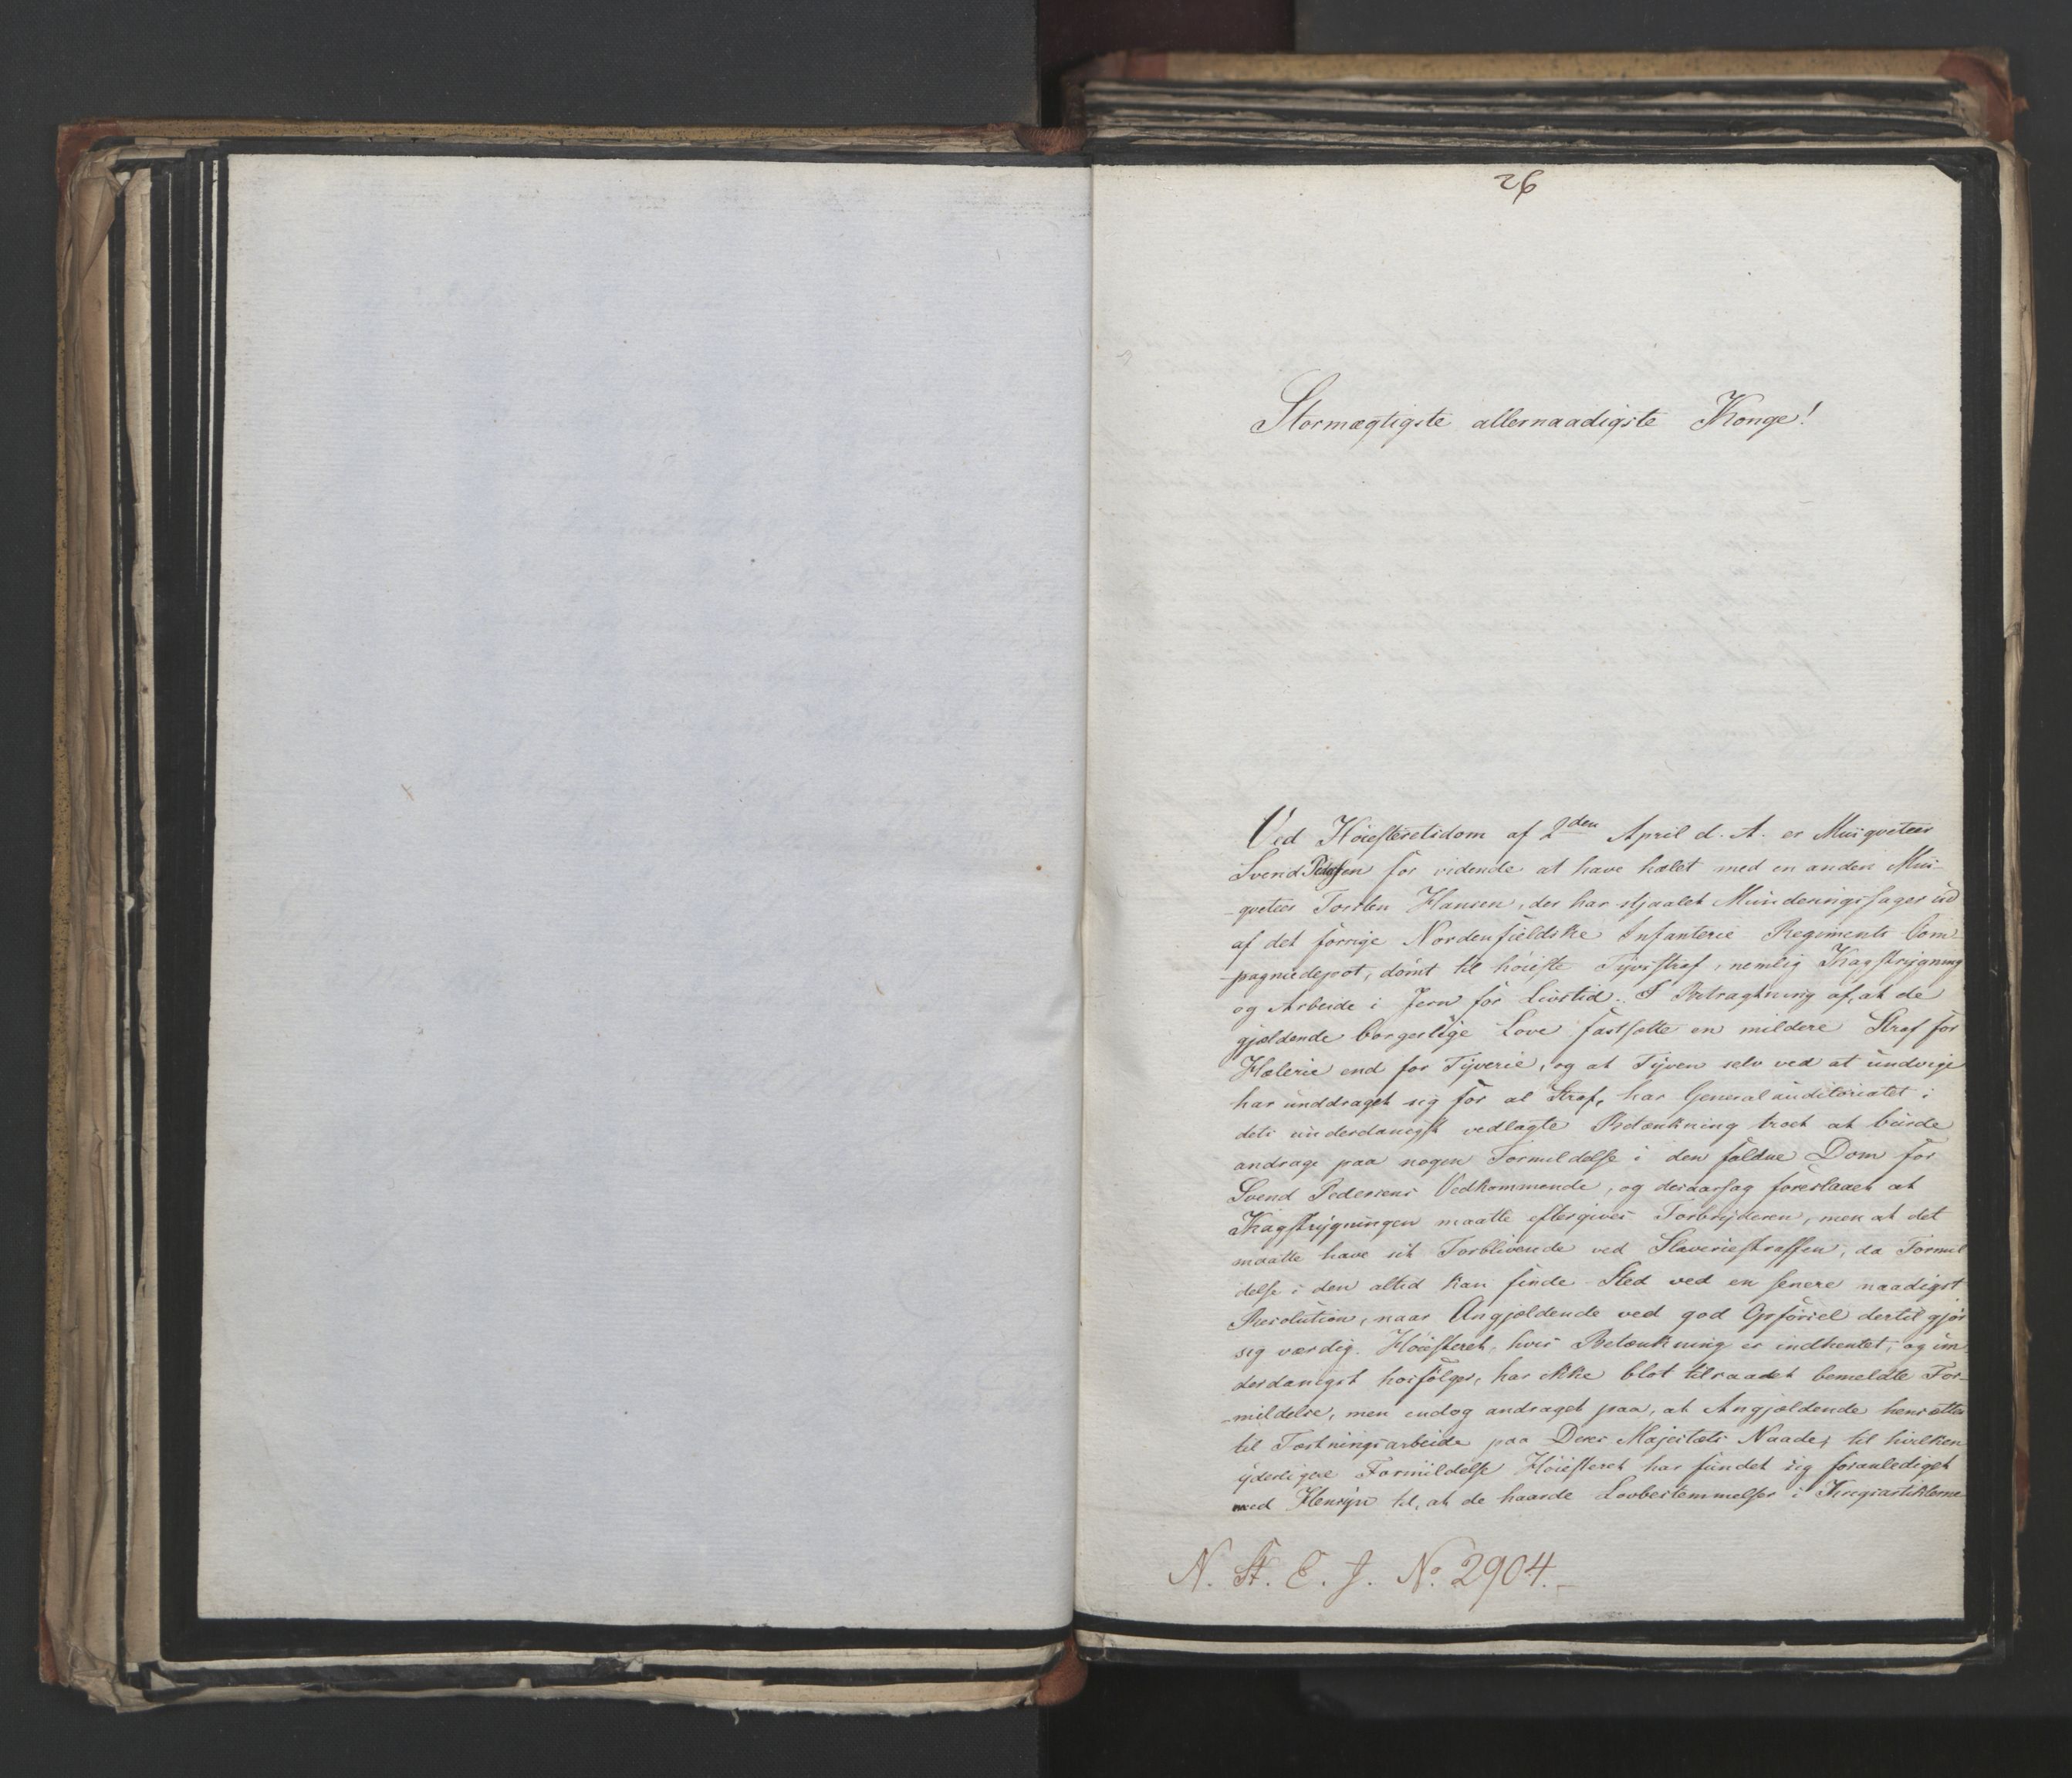 26
Stormægtigste allernaadigste Konge!
Ved Høiesteretsdom af 2den April d. A. er Musqveteer
Svend Pedersen for vidende at have hælet med en anden Mus-
-qveteer Torsten Hansen, der har stjaalet Munderingssager ud
af det forrige Nordenfieldske Infanterie Regiments Com-
-pagniedepot, dømt til høieste Tyvsstraf, nemlig Kagstrygning
og Arbeide i Jern for Livstid. I Betragtning af, at de
gjældende borgerlige Love fastsætte en mildere Straf for
Hælerie end for Tyverie, og at Tyven selv ved at undvige
har unddraget sig for al Straf, har Generalauditoriatet i
dets underdanigst vedlagte Betænkning troet at burde
andrage paa nogen Formildelse i den faldne Dom for
Svend Pedersens Vedkommende, og desaarsag foreslaaet at
Kagstrygningen maatte eftergives Forbryderen, men at det
maatte have sit Forblivende ved Slaveriestraffen, da Formil
delse i den altid kan finde Sted ved en senere naadigst
Resolution, naar Angjældende ved god Opførsel dertil gjør
sig værdig. Høiesteret, hvis Betænkning er indhentet, og un
derdanigst hosfølger, har ikke blot tilraadet bemeldte For-
-mildelse, men endog andraget paa, at Angjældende hensættes
til Fæstningsarbeide paa Deres Majestæts Naade, til hvilken
yderligere Formildelse Høiesteret har fundet sig foranlediget
med Hensyn til, at de haarde Lovbestemmelser i Krigsartiklerne
N. St. E. J. No. 2904.